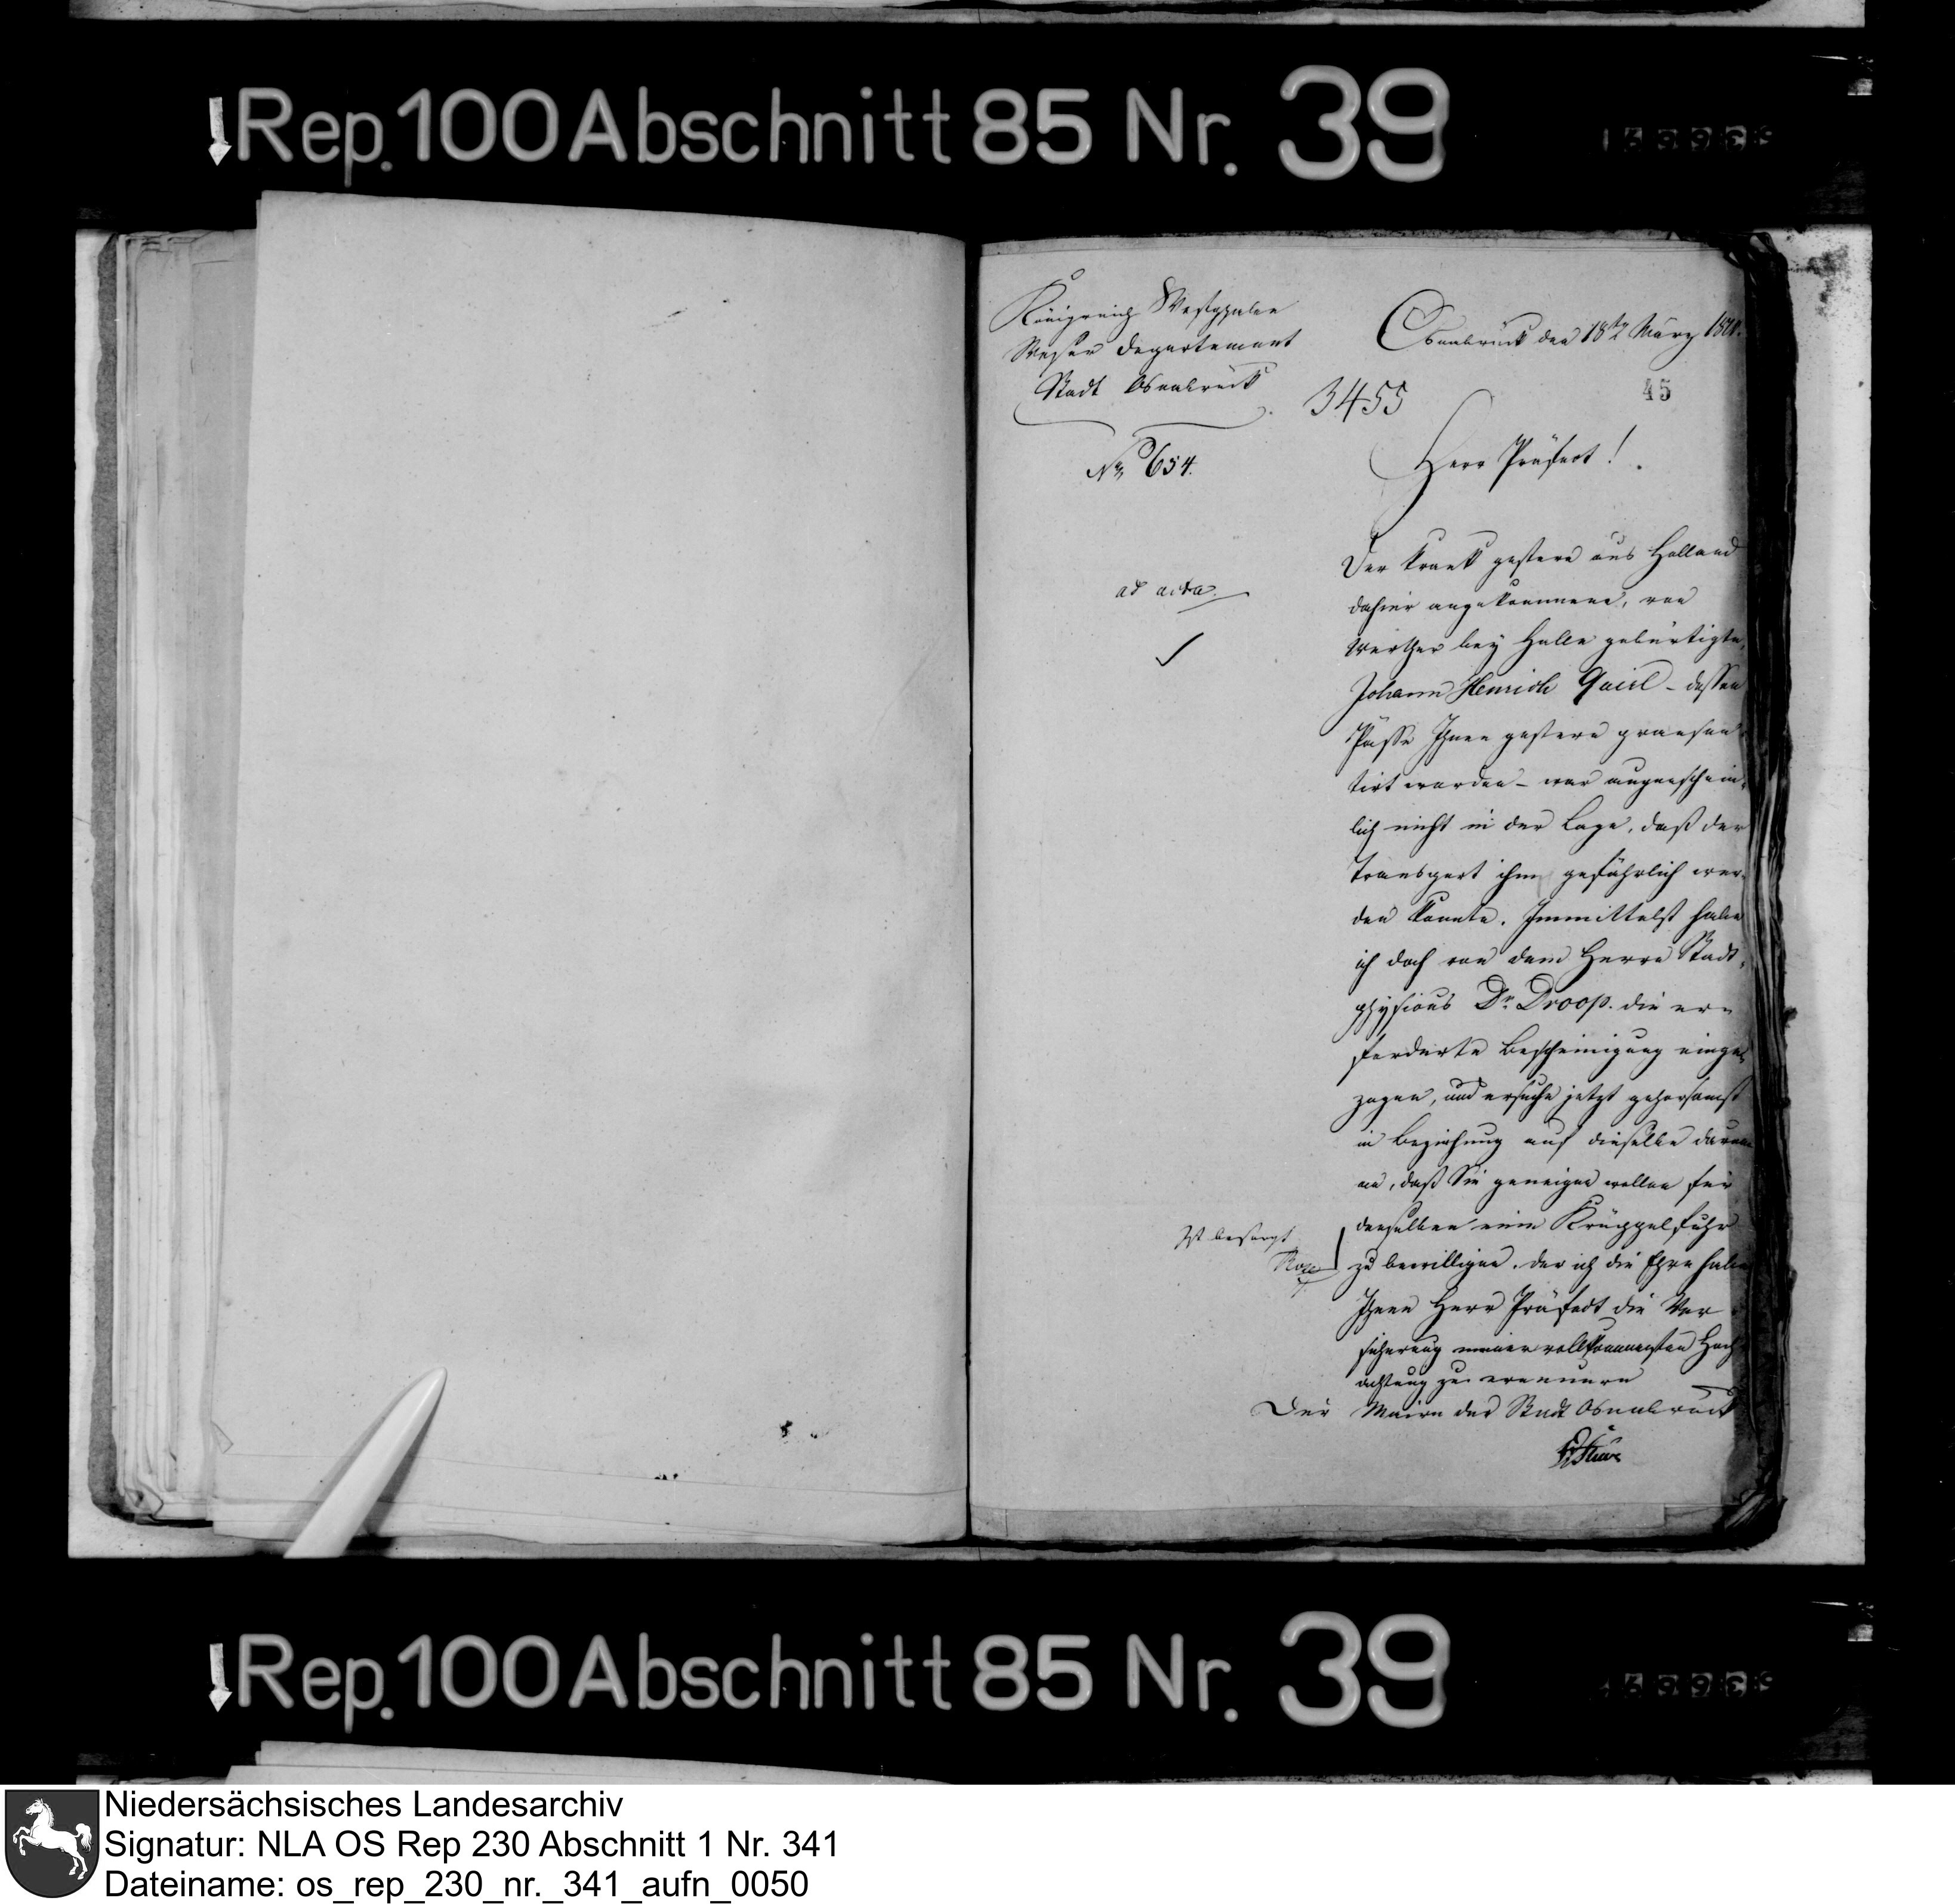 Rep. 100 Abschnitt 85 Nr. 39
Königreich Westphalen
Weser Departement
Stadt Osnabrück
No 654.
Osnabrück den 18ten März
3455
45
Herr Präfect!
ad acta.
Der krank gestern aus Holland
dahier angekommene, von
Werther bey Halle gebürtigte,
Johann Henrich – dessen
Pässe Ihnen gestern praesen
tirt worden – war augenschein-
lich nicht in der Lage, daß der
Transport ihm gefährlich wer-
den konnte. Immittelst habe
ich doch von dem Herrn Stadt-
physicus Dr. Droop. die er-
forderte Bescheinigung einge-
zogen, und ersuche jetzt gehorsamst
in Beziehung auf dieselbe darum
an, daß Sie geneigen wollen für
denselben eine Krüppelfuhr
zu bewilligen. Der ich die Ehre habe
Ist besorgt
Ihnen Herr Präfect die Ver
sicherung meiner vollkommensten Hoch
achtung zu erneuern
Der Maire der Stadt Osnabrück
Stüve
Rep. 100 Abschnitt 85 Nr. 39
Niedersächsisches Landesarchiv
Signatur: NLA OS Rep 230 Abschnitt 1 Nr. 341
Dateiname: os_rep_230_nr._341_aufn_0050